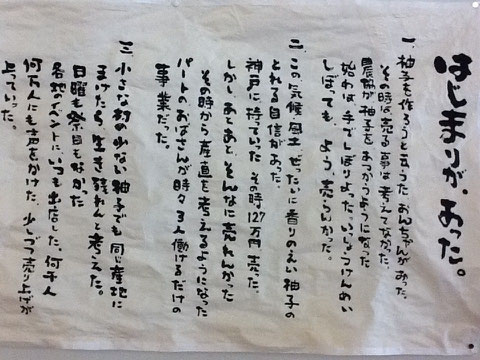 はじまりが、あった。
一、柚子を作ろうと云うた おんちゃんが あった。
その時は売る事は考えてなかった。
農協が柚子をあつかうようになった
始めは手でしぼりよった。いっしょうけんめい
しぼっても、よう、売らんかった。
二、この気候風土、ぜったいに香りのえい柚子の
とれる自信があった。
神戸に持ていた その時127万円売った。
しかし、あとあと、そんなに売れんかった
その時から産直を考えるようになった
パートのおばさんが時々3人働けるだけの
事業だった。
三、小さな村の少ない柚子でも同じ産地に
まけたら、生き残れんと考えた。
日曜も祭日もなかった
各地のイベントに、いつも出店した、何千人
何万人にも声をかけた、少しづつ売り上げが
上っていった。